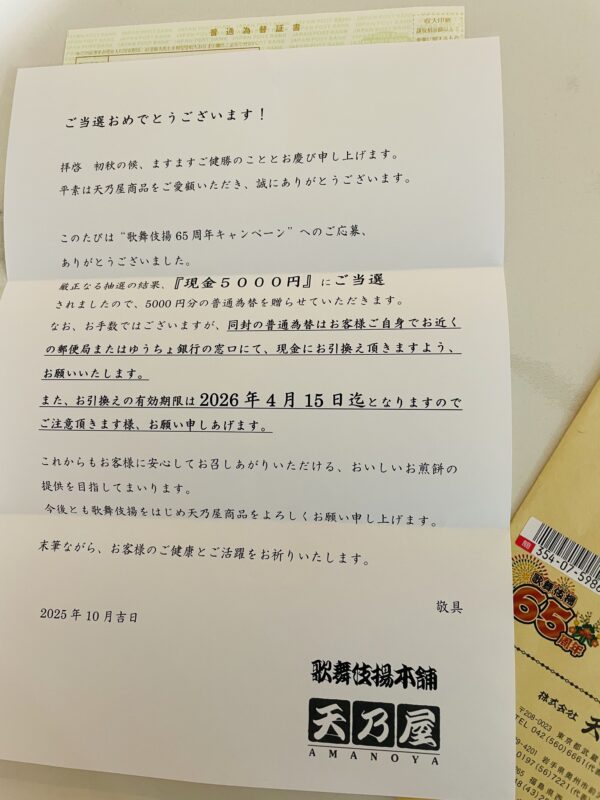 普通為替証書
ご当選おめでとうございます！
拝啓　初秋の候、ますますご健勝のこととお慶び申し上げます。
平素は天乃屋商品をご愛顧いただき、誠にありがとうございます。
このたびは“歌舞伎揚 65 周年キャンペーン”へのご応募、
ありがとうございました。
厳正なる抽選の結果、『現金５０００円』にご当選
されましたので、5000 円分の普通為替を贈らせていただきます。
なお、お手数ではございますが、同封の普通為替はお客様ご自身でお近く
の郵便局またはゆうちょ銀行の窓口にて、現金にお引換え頂きますよう、
お願いいたします。
また、お引換えの有効期限は 2026 年 4 月 15 日迄となりますので
ご注意頂きます様、お願い申しあげます。
これからもお客様に安心してお召しあがりいただける、おいしいお煎餅の
提供を目指してまいります。
今後とも歌舞伎揚をはじめ天乃屋商品をよろしくお願い申し上げます。
末筆ながら、お客様のご健康とご活躍をお祈りいたします。
2025 年 10 月吉日
敬具
歌舞伎揚本舗
天乃屋
AMANOYA
354-07-5986
歌舞伎揚
65周年
株式会社 天
〒208-0023 東京都武蔵
TEL 042(560)6661(代表
9-4201 岩手県奥州市前
0197(56)7221(代表
福島県